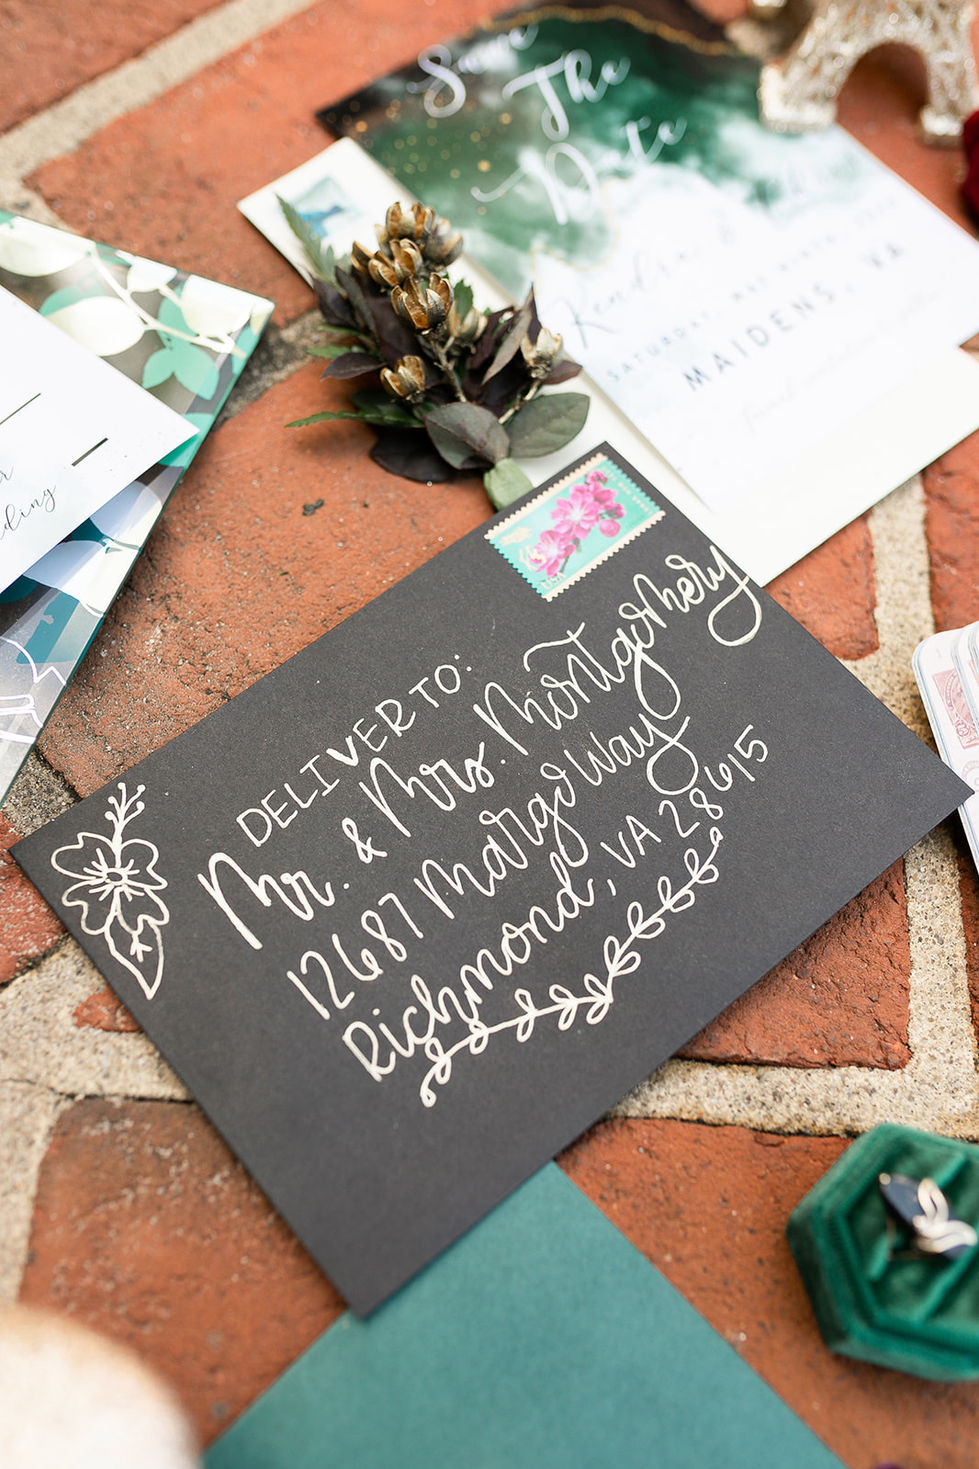 Save
The
Date
Kendra &
SATURDAY, MAY
MAIDENS, VA
USA
DELIVER TO:
Mr. & Mrs. Montgomery
12687 Margo Way
Richmond, VA 28615